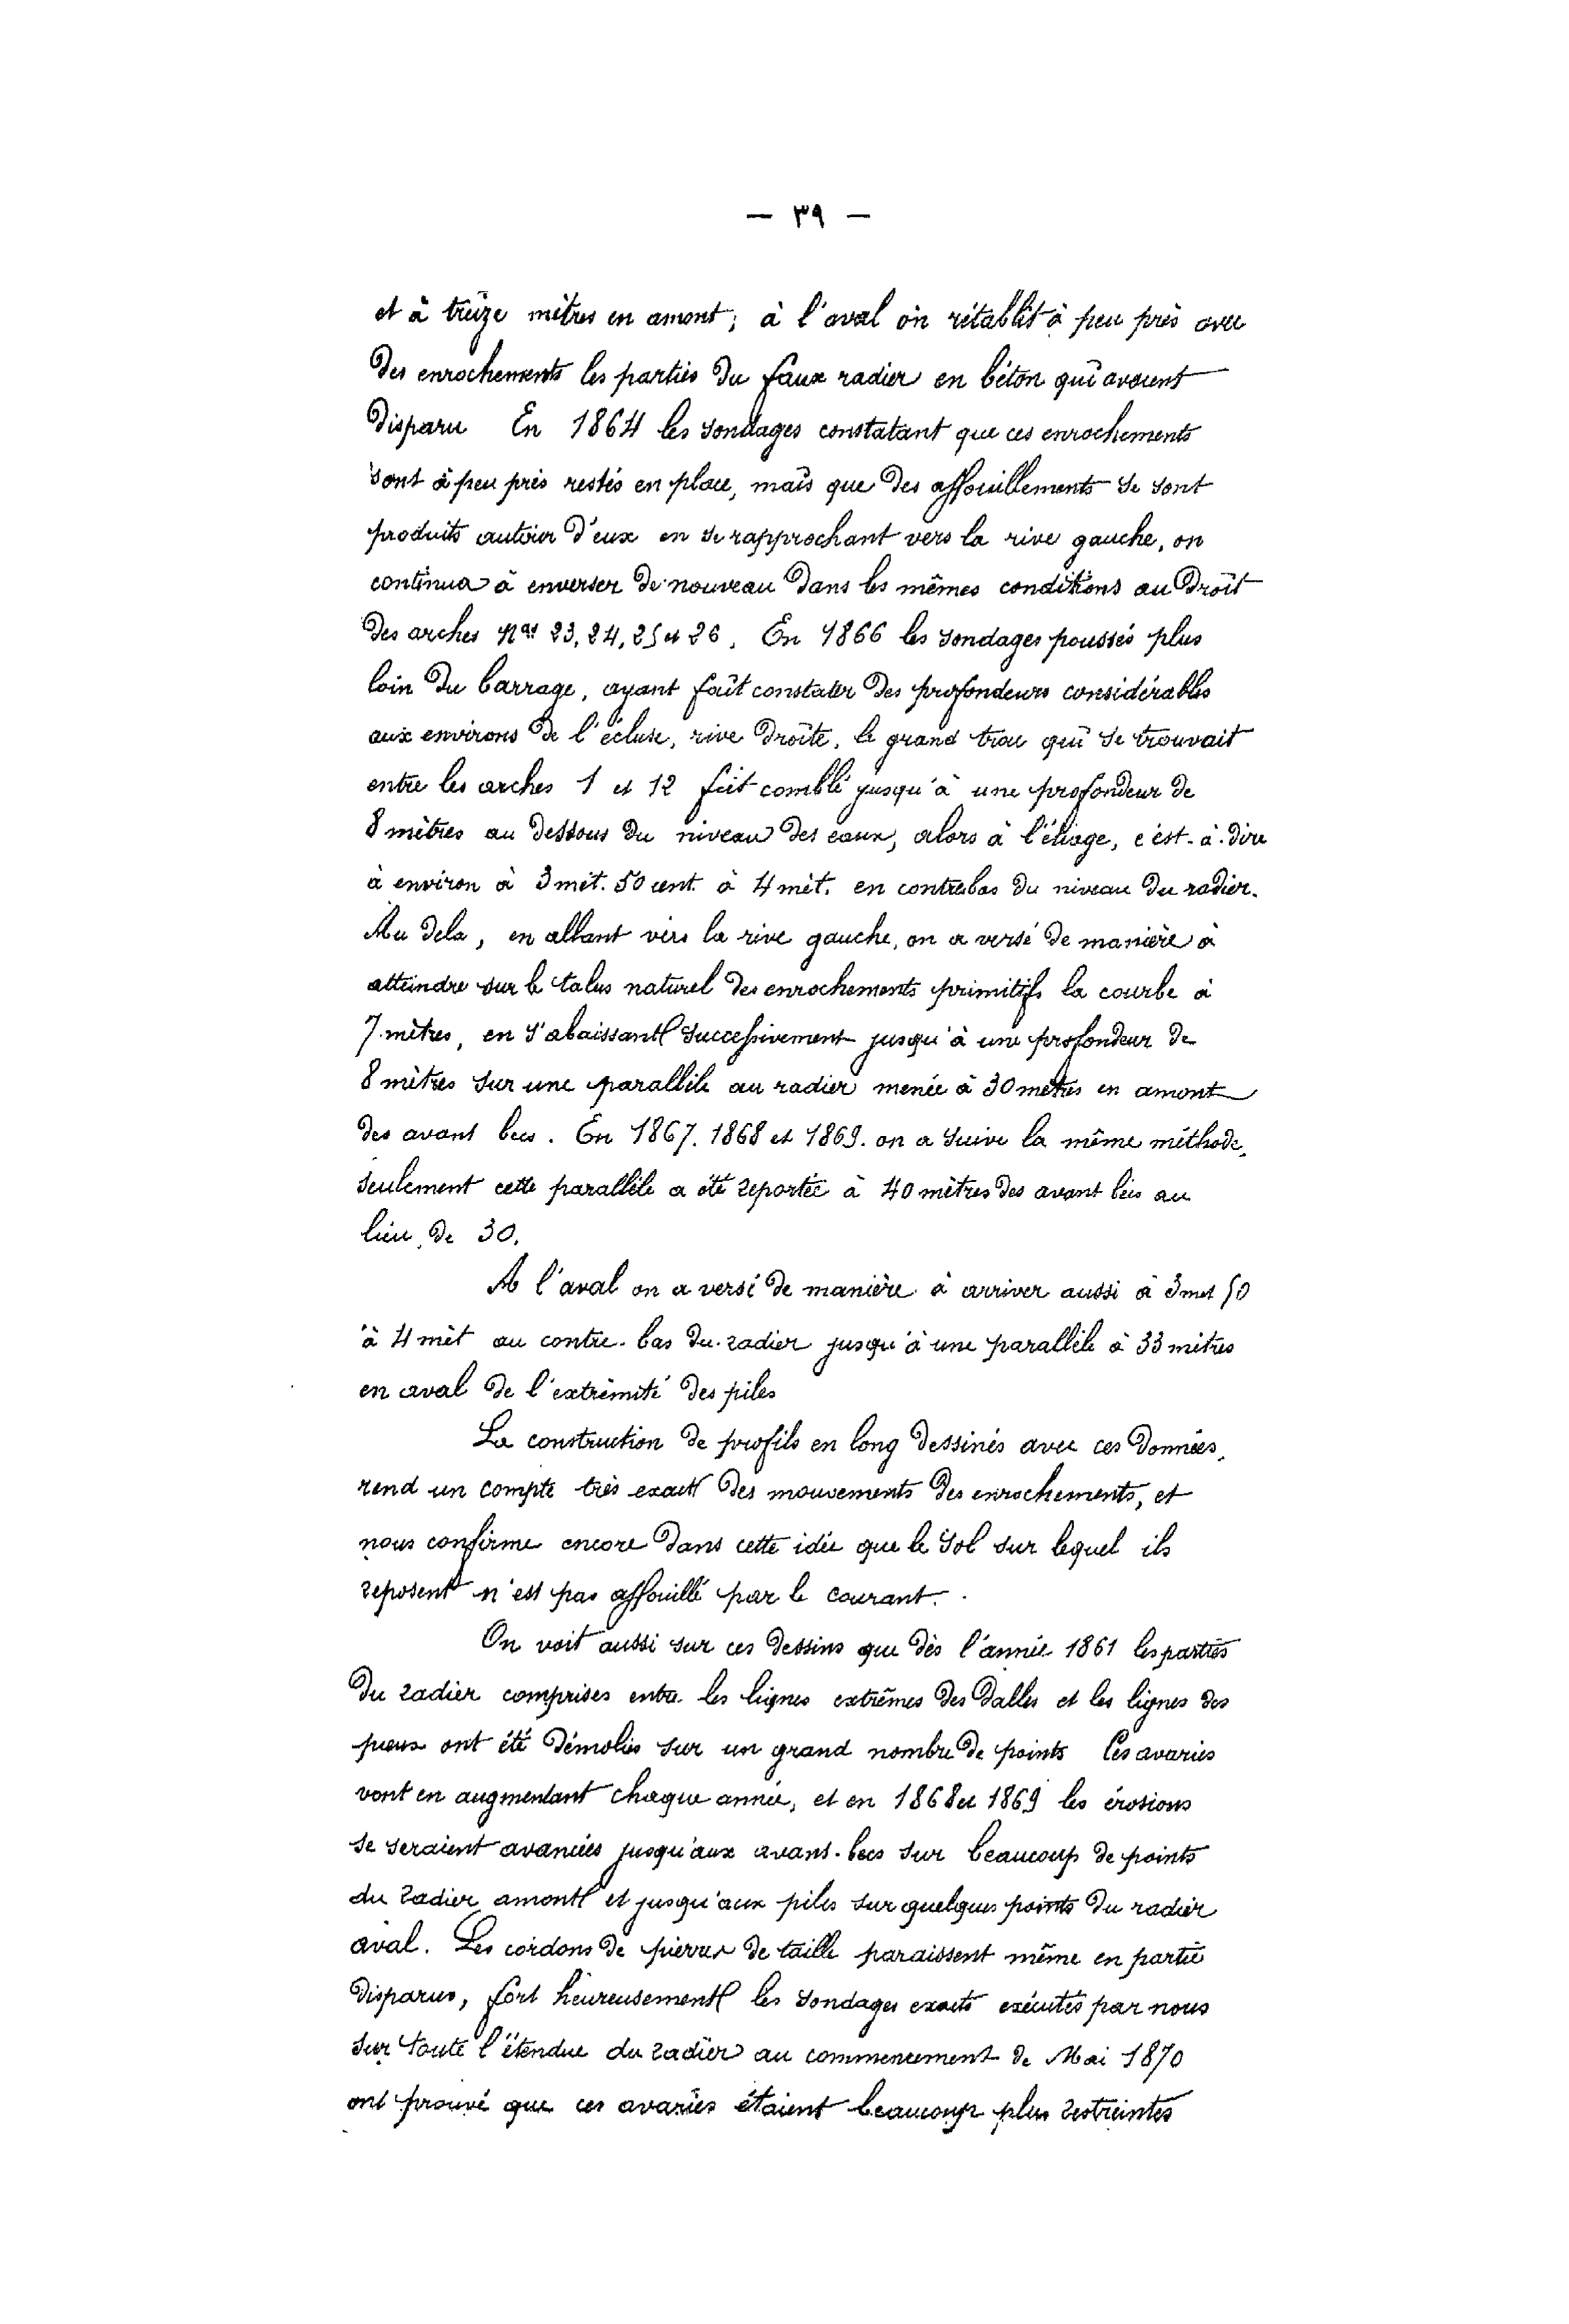 — ٣٩ —
et à treize mètres en amont; à l'aval on rétablit à peu près avec
des enrochements les parties du faux radier en béton qui avaient
disparu En 1864 les sondages constatant que ces enrochements
sont à peu près restés en place, mais que des affouillements se sont
produits autour d'eux en se rapprochant vers la rive gauche, on
continua à enverser de nouveau dans les mêmes conditions au droit
des arches Nos 23, 24, 25 et 26. En 1866 les sondages poussés plus
loin du barrage, ayant fait constater des profondeurs considérables
aux environs de l'écluse, rive droite, le grand trou qui se trouvait
entre les arches 1 et 12 fut comblé jusqu'à une profondeur de
8 mètres au dessous du niveau des eaux, alors à l'étiage, c'est-à-dire
à environ à 3 mèt. 50 cent. à 4 mèt. en contrebas du niveau du radier.
Au dela, en allant vers la rive gauche, on a versé de manière à
atteindre sur le talus naturel des enrochements primitifs la courbe à
7 mètres, en s'abaissant successivement jusqu'à une profondeur de
8 mètres sur une parallèle au radier menée à 30 mètres en amont
des avant becs. En 1867. 1868 et 1869. on a suivi la même méthode,
seulement cette parallèle a été reportée à 40 mètres des avant becs au
lieu de 30.
A l'aval on a versé de manière à arriver aussi à 3 met 50
à 4 mèt au contre-bas du radier jusqu'à une parallèle à 33 mètres
en aval de l'extrémité des piles
La construction de profils en long dessinés avec ces données,
rend un compte très exact des mouvements des enrochements, et
nous confirme encore dans cette idée que le sol sur lequel ils
reposent n'est pas affouillé par le courant.
On voit aussi sur ces dessins que dès l'année 1861 les parties
du radier comprises entre les lignes extrêmes des dalles et les lignes des
pieux ont été démolies sur un grand nombre de points Ces avaries
vont en augmentant chaque année, et en 1868 et 1869 les érosions
se seraient avancées jusqu'aux avant-becs sur beaucoup de points
du radier amont et jusqu'aux piles sur quelques points du radier
aval. Les cordons de pierres de taille paraissent même en partie
disparus, fort heureusement les sondages exacts exécutés par nous
sur toute l'étendue du radier au commencement de Mai 1870
ont prouvé que ces avaries étaient beaucoup plus restreintes